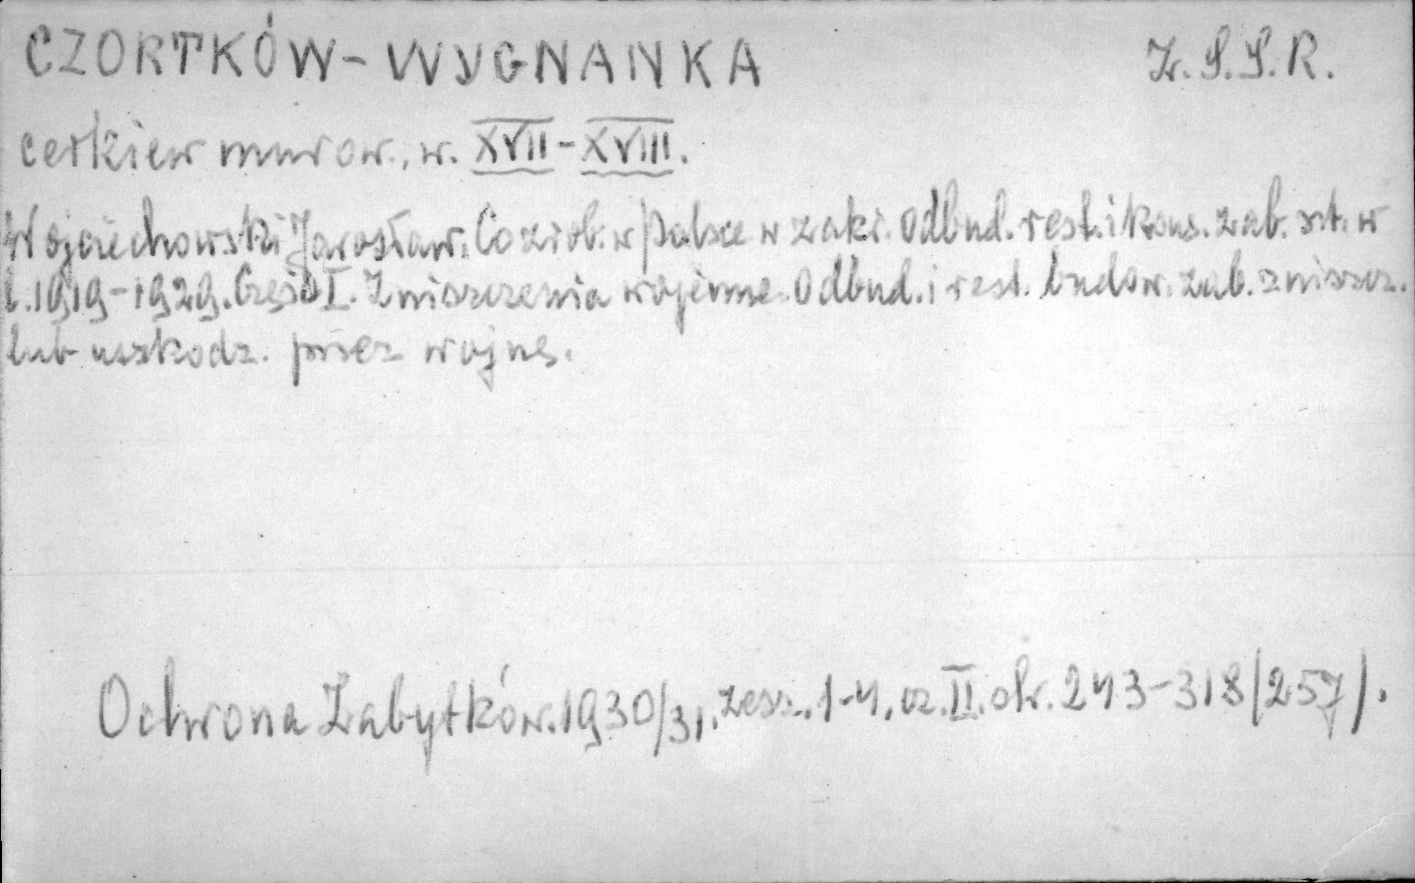 CZORTKÓW-WYGNANKA Z.S.S.R.
cerkiew murow., w. XVII-XVIII.
Wojciechowski Jarosław. Co zrob. w Polsce w zakr. odbud. rest. i kons. zab. szt. w
l. 1919-1929. Część I. Zniszczenia wojenne. Odbud. i rest. budow. zab. zniszcz.
lub uszkodz. przez wojnę.
Ochrona Zabytków. 1930/31, zesz. 1-4, cz. II. str. 243-318/257/.